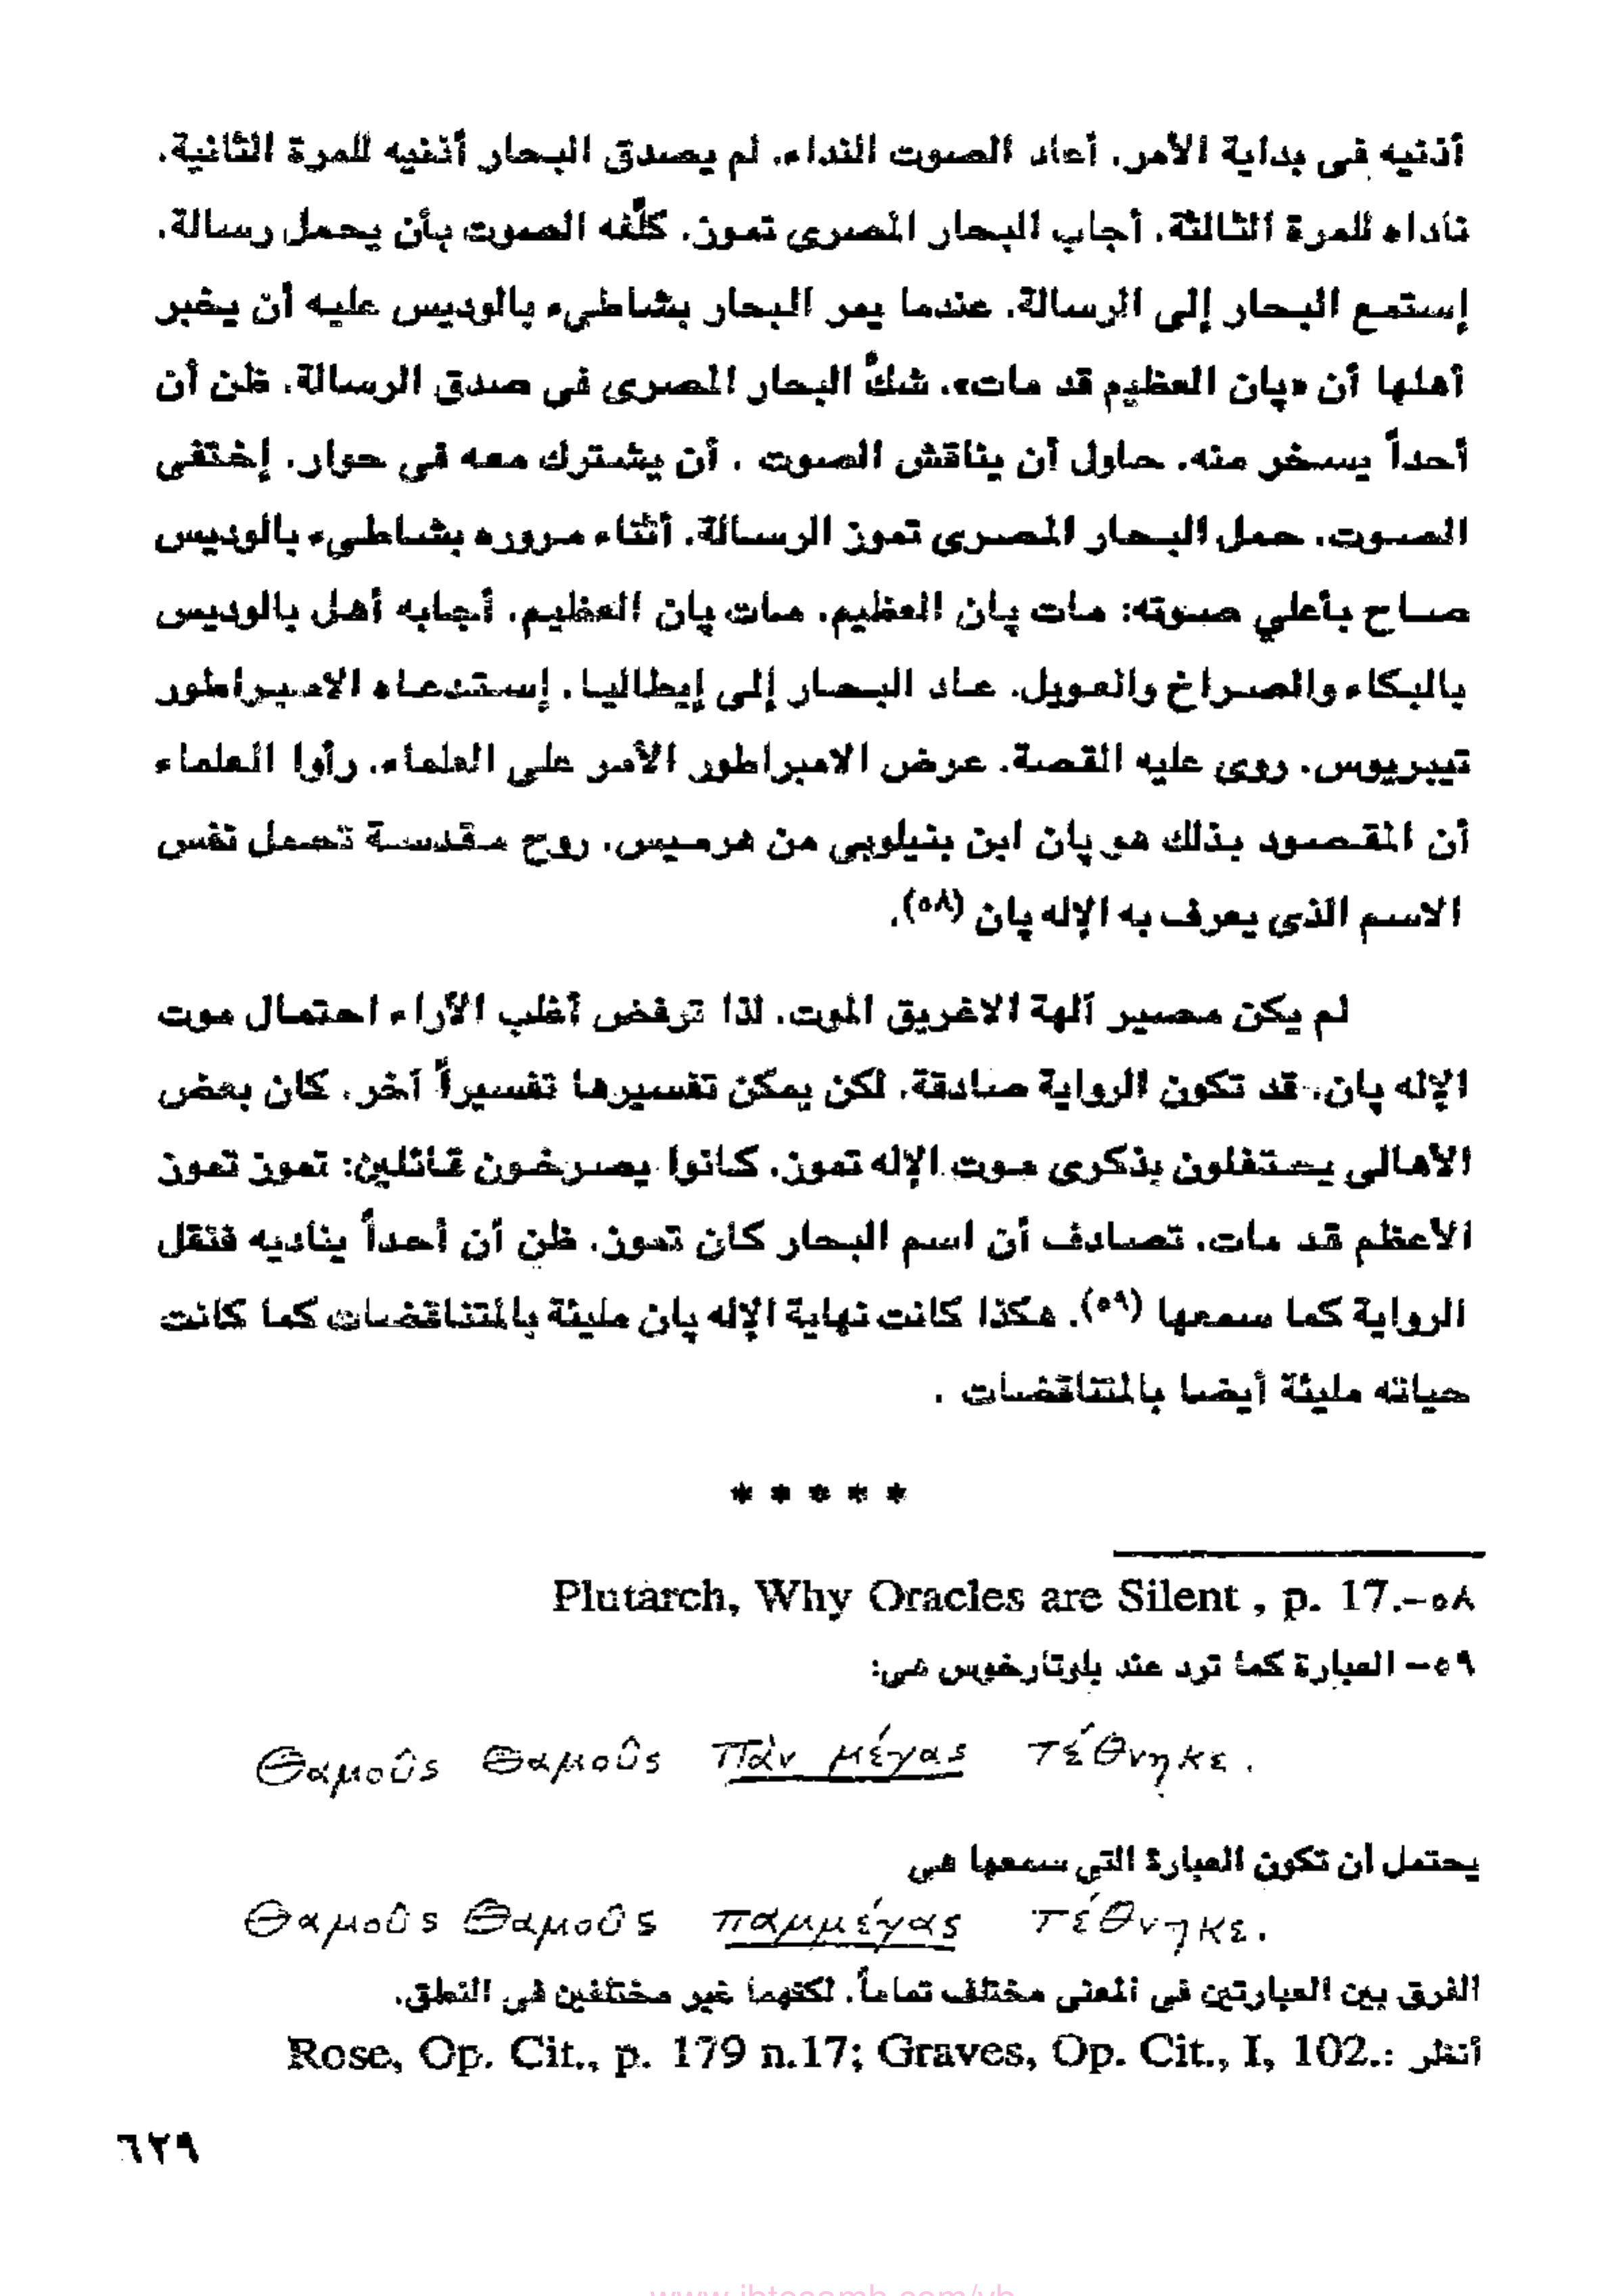 أذنيه فى بداية الأمر. أعاد الصوت النداء. لم يصدق البحار أذنيه للمرة الثانية.
ناداه للمرة الثالثة. أجاب البحار المصرى تموز. كلَّفه الصوت بأن يحمل رسالة.
إستمع البحار إلى الرسالة. عندما يمر البحار بشاطىء بالوديس عليه أن يخبر
أهلها أن «پان العظيم قد مات». شكَّ البحار المصرى فى صدق الرسالة. ظن أن
أحداً يسخر منه. حاول أن يناقش الصوت . أن يشترك معه فى حوار. إختفى
الصوت. حمل البحار المصرى تموز الرسالة. أثناء مروره بشاطىء بالوديس
صاح بأعلي صوته: مات پان العظيم. مات پان العظيم. أجابه أهل بالوديس
بالبكاء والصراخ والعويل. عاد البحار إلى إيطاليا. إستدعاه الامبراطور
تيبريوس. روى عليه القصة. عرض الامبراطور الأمر على العلماء. رأوا العلماء
أن المقصود بذلك هو پان ابن بنيلوبي من هرميس. روح مقدسة تحمل نفس
الاسم الذى يعرف به الإله پان (٥٨).
لم يكن مصير آلهة الاغريق الموت. لذا ترفض أغلب الأراء احتمال موت
الإله پان. قد تكون الرواية صادقة. لكن يمكن تفسيرها تفسيراً آخر. كان بعض
الأهالى يحتفلون بذكرى موت الإله تموز. كانوا يصرخون قائلين: تموز تموز
الأعظم قد مات. تصادف أن اسم البحار كان تموز. ظن أن أحداً يناديه فنقل
الرواية كما سمعها (٥٩). هكذا كانت نهاية الإله پان مليئة بالمتناقضات كما كانت
حياته مليئة أيضا بالمتناقضات .
* * * * *
٥٨-Plutarch, Why Oracles are Silent , p. 17.
٥٩- العبارة كما ترد عند بلوتارخوس هى:
Θαμοῦς Θαμοῦς Πὰν μέγας τέθνηκε.
يحتمل أن تكون العبارة التي سمعها هى
Θαμοῦς Θαμοῦς παμμέγας τέθνηκε.
الفرق بين العبارتين فى المعنى مختلف تماماً. لكنهما غير مختلفين فى النطق.
أنظر :Rose, Op. Cit., p. 179 n.17; Graves, Op. Cit., I, 102.
٦٢٩